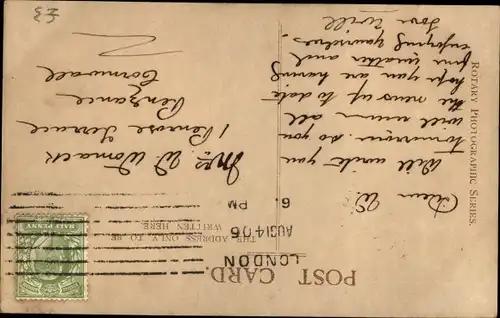 POST CARD.
THE ADDRESS ONLY TO BE
WRITTEN HERE
LONDON
6. PM
AUG 14 06
HALF PENNY
ROTARY PHOTOGRAPHIC SERIES.
Dear W.
Will write you
tomorrow so you
will num all
the news up to date
hope you are having
fine weather and
enjoying yourselves.
Your Will
Mrs. W. Womack
1 Penrose Terrace
Penzance
Cornwall
£3